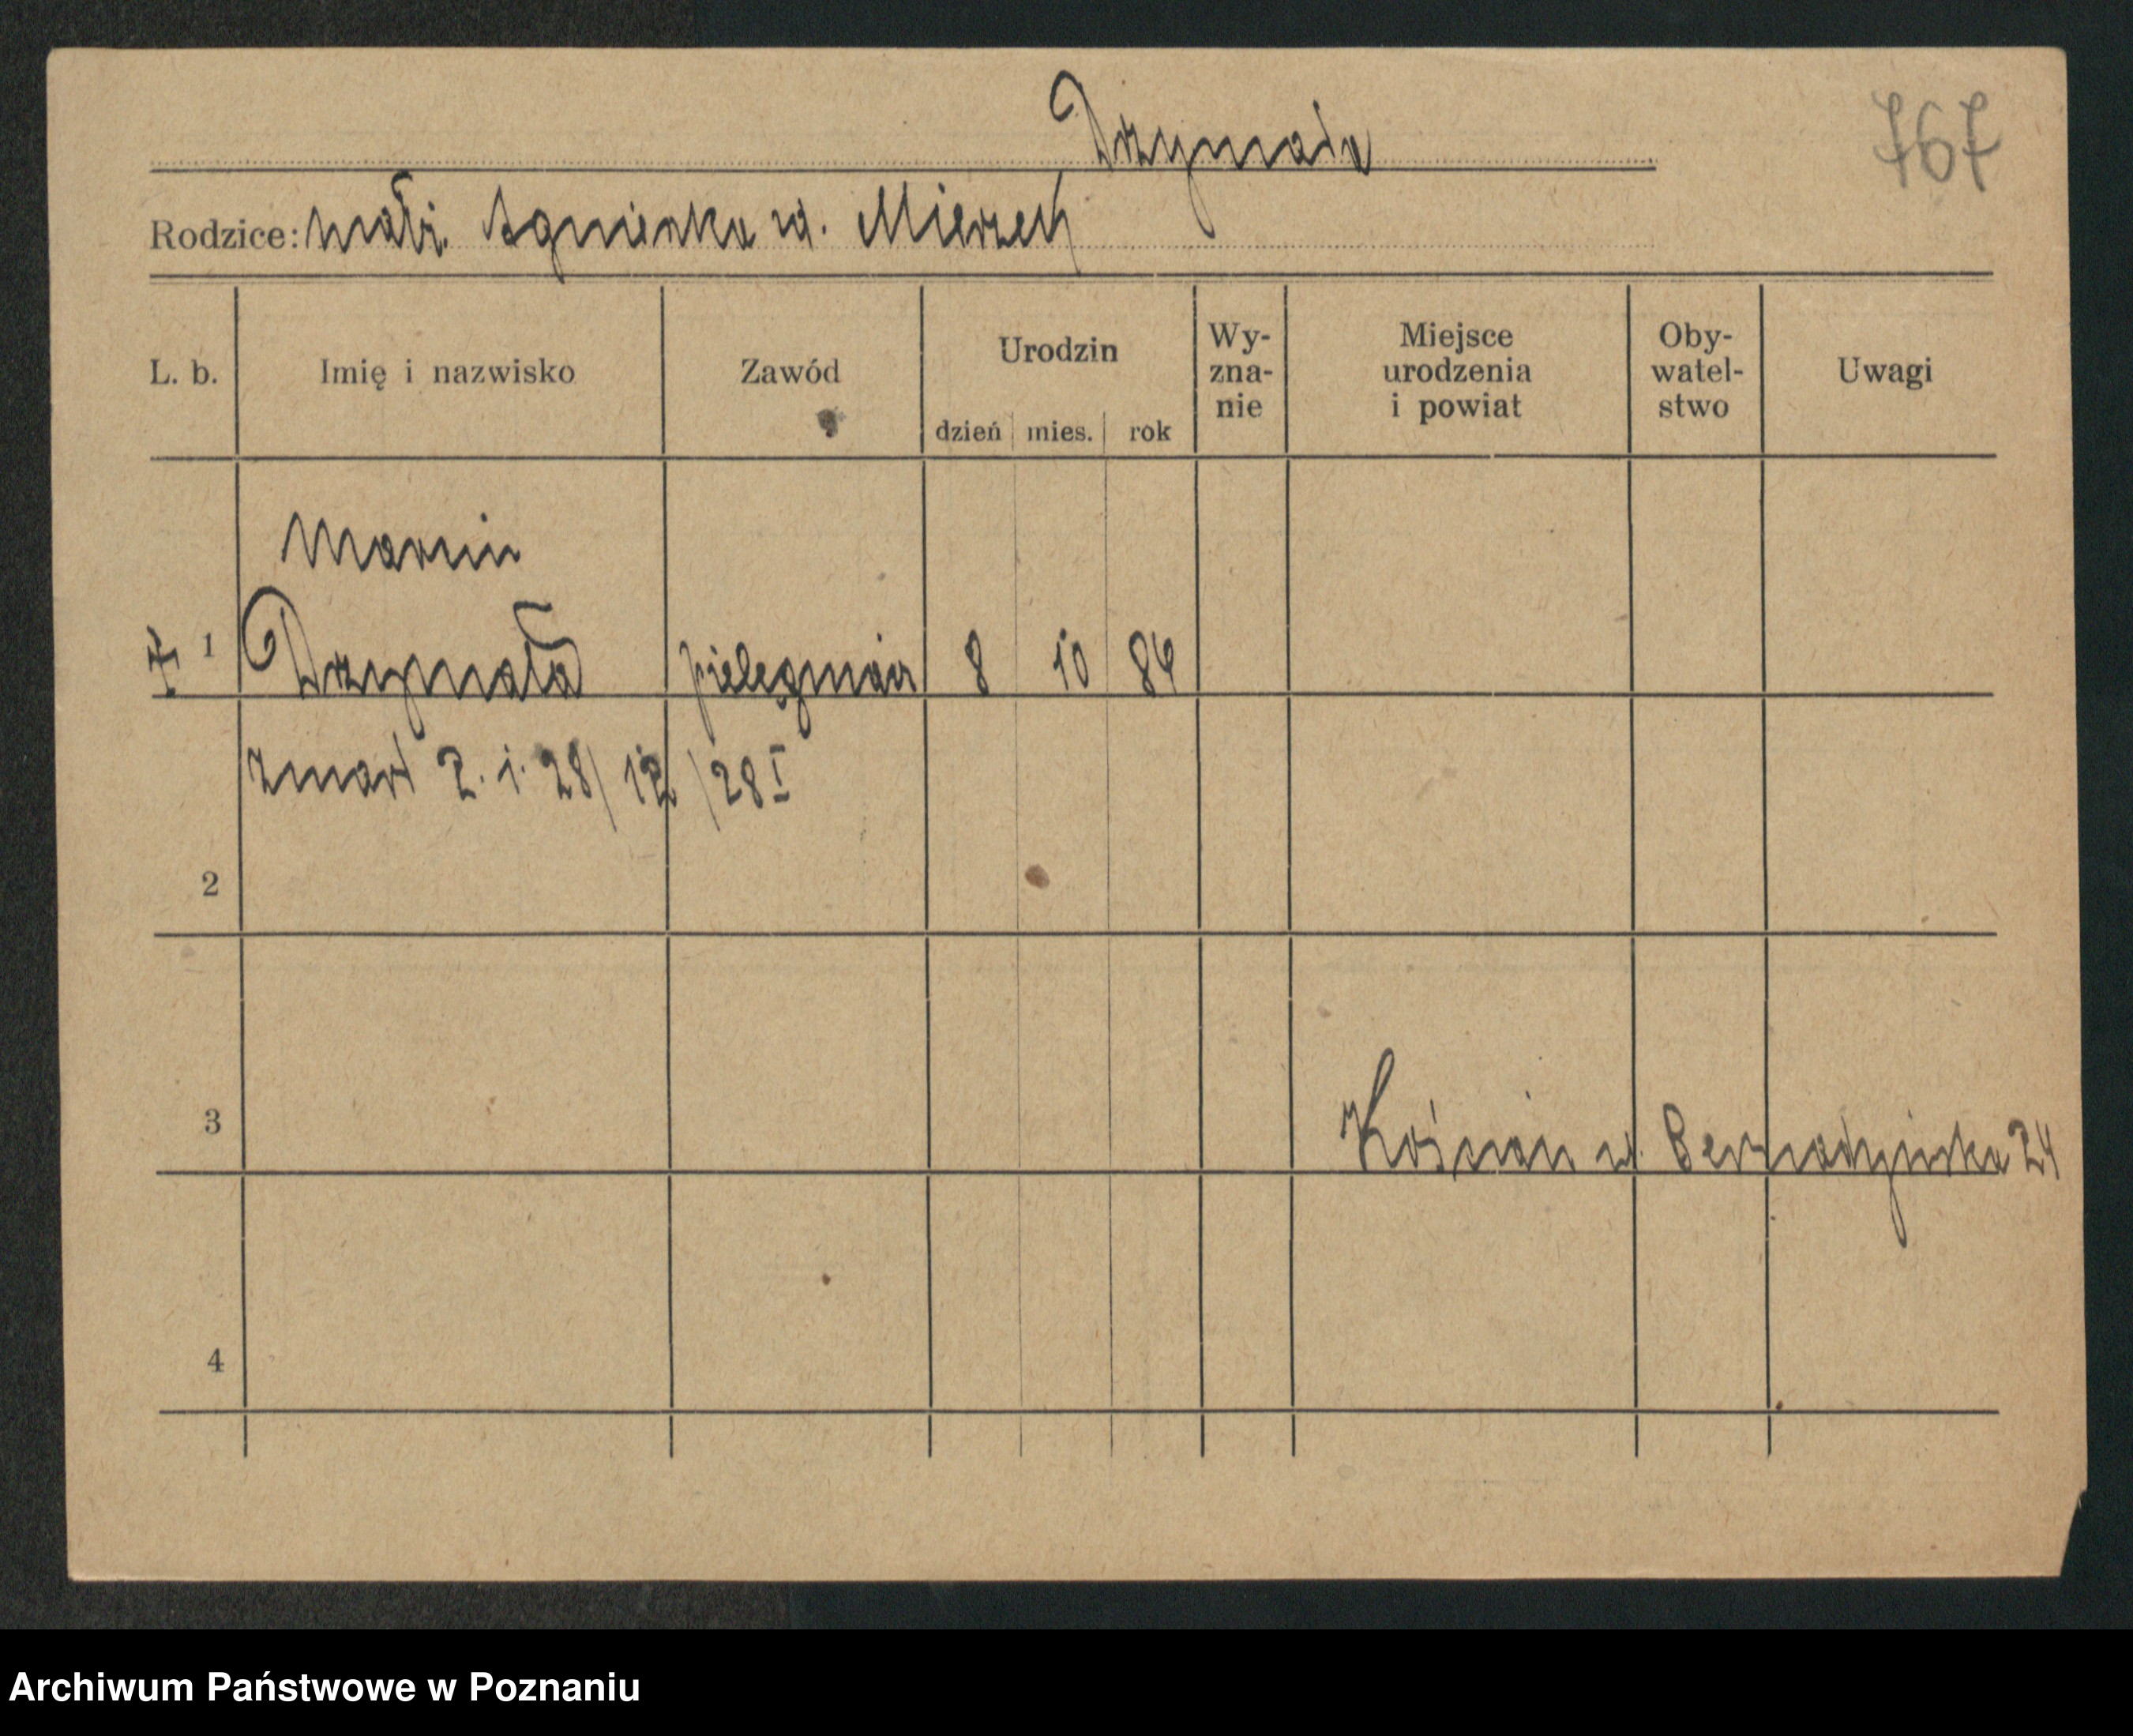 Drzymała
767
Rodzice: małż. Agnieszka ur.
L. b. Imię i nazwisko Zawód Urodzin dzień mies. rok Wy-zna-nie Miejsce urodzenia i powiat Oby-watel-stwo Uwagi
Marcin
1 Drzymała pielęgniarz 8 10 84
zmarł 2. i. 28/ 12 /28 I
2
3 Kościan ul. Bernadyńska 24
4
Archiwum Państwowe w Poznaniu